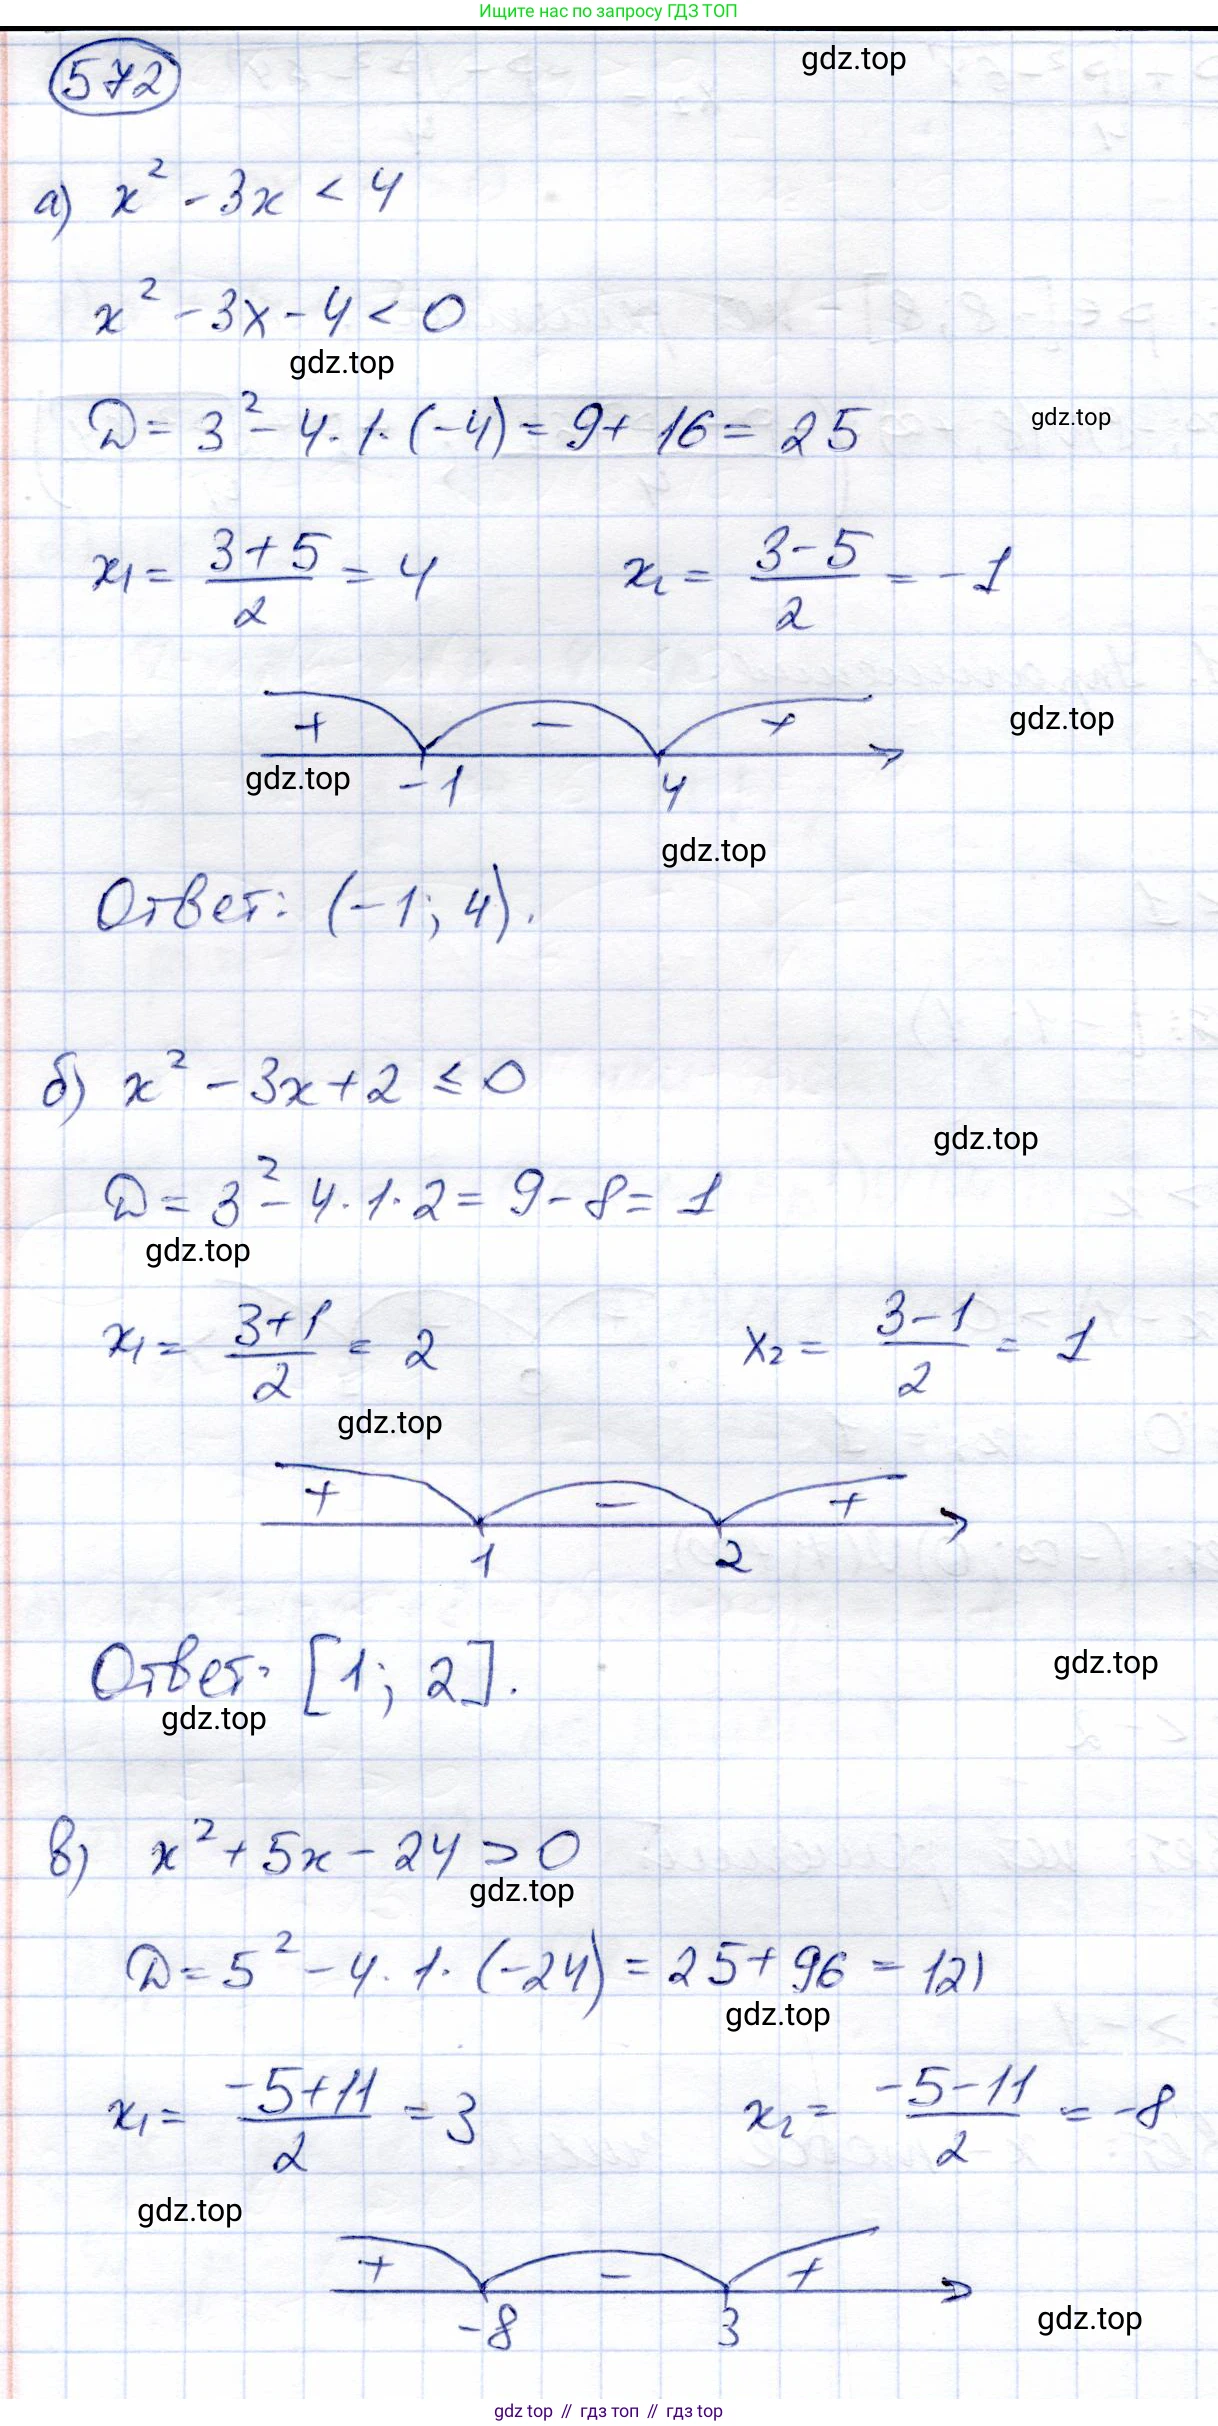 Ищите нас по запросу ГДЗ ТОП
572
gdz.top
а) x² - 3x < 4
x² - 3x - 4 < 0
gdz.top
D = 3² - 4 · 1 · (-4) = 9 + 16 = 25
gdz.top
x₁ = (3+5)/2 = 4 x₂ = (3-5)/2 = -1
+ - +
gdz.top
gdz.top
-1 4
gdz.top
Ответ: (-1; 4).
б) x² - 3x + 2 ≤ 0
gdz.top
D = 3² - 4 · 1 · 2 = 9 - 8 = 1
gdz.top
x₁ = (3+1)/2 = 2 x₂ = (3-1)/2 = 1
gdz.top
+ - +
1 2
Ответ: [1; 2].
gdz.top
gdz.top
в) x² + 5x - 24 > 0
gdz.top
D = 5² - 4 · 1 · (-24) = 25 + 96 = 121
gdz.top
x₁ = (-5+11)/2 = 3 x₂ = (-5-11)/2 = -8
gdz.top
+ - +
-8 3
gdz.top
gdz top // гдз топ // гдз top